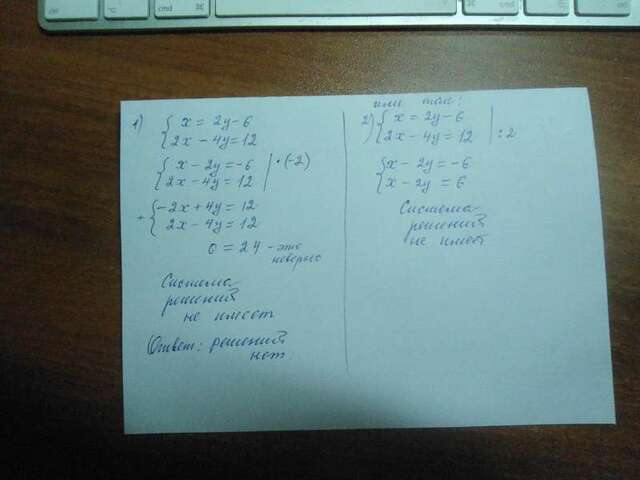 1) { x = 2y - 6
2x - 4y = 12
{ x - 2y = -6 | · (-2)
2x - 4y = 12
+ { -2x + 4y = 12
2x - 4y = 12
0 = 24 - это
неверно
Система
решений
не имеет
Ответ: решений
нет
или так:
2) { x = 2y - 6
2x - 4y = 12 | : 2
{ x - 2y = -6
x - 2y = 6
Система
решений
не имеет